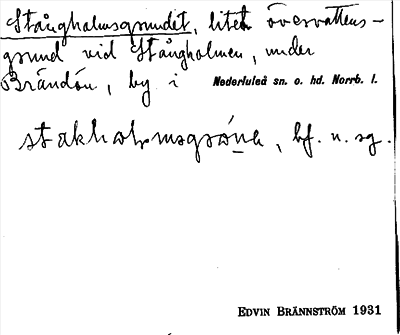 Stångholmsgrundet, litet översvattens-
grund vid Stångholmen, under
Brändön, by i Nederluleå sn. o. hd. Norrb. l.
bf. n. sg.
EDVIN BRÄNNSTRÖM 1931